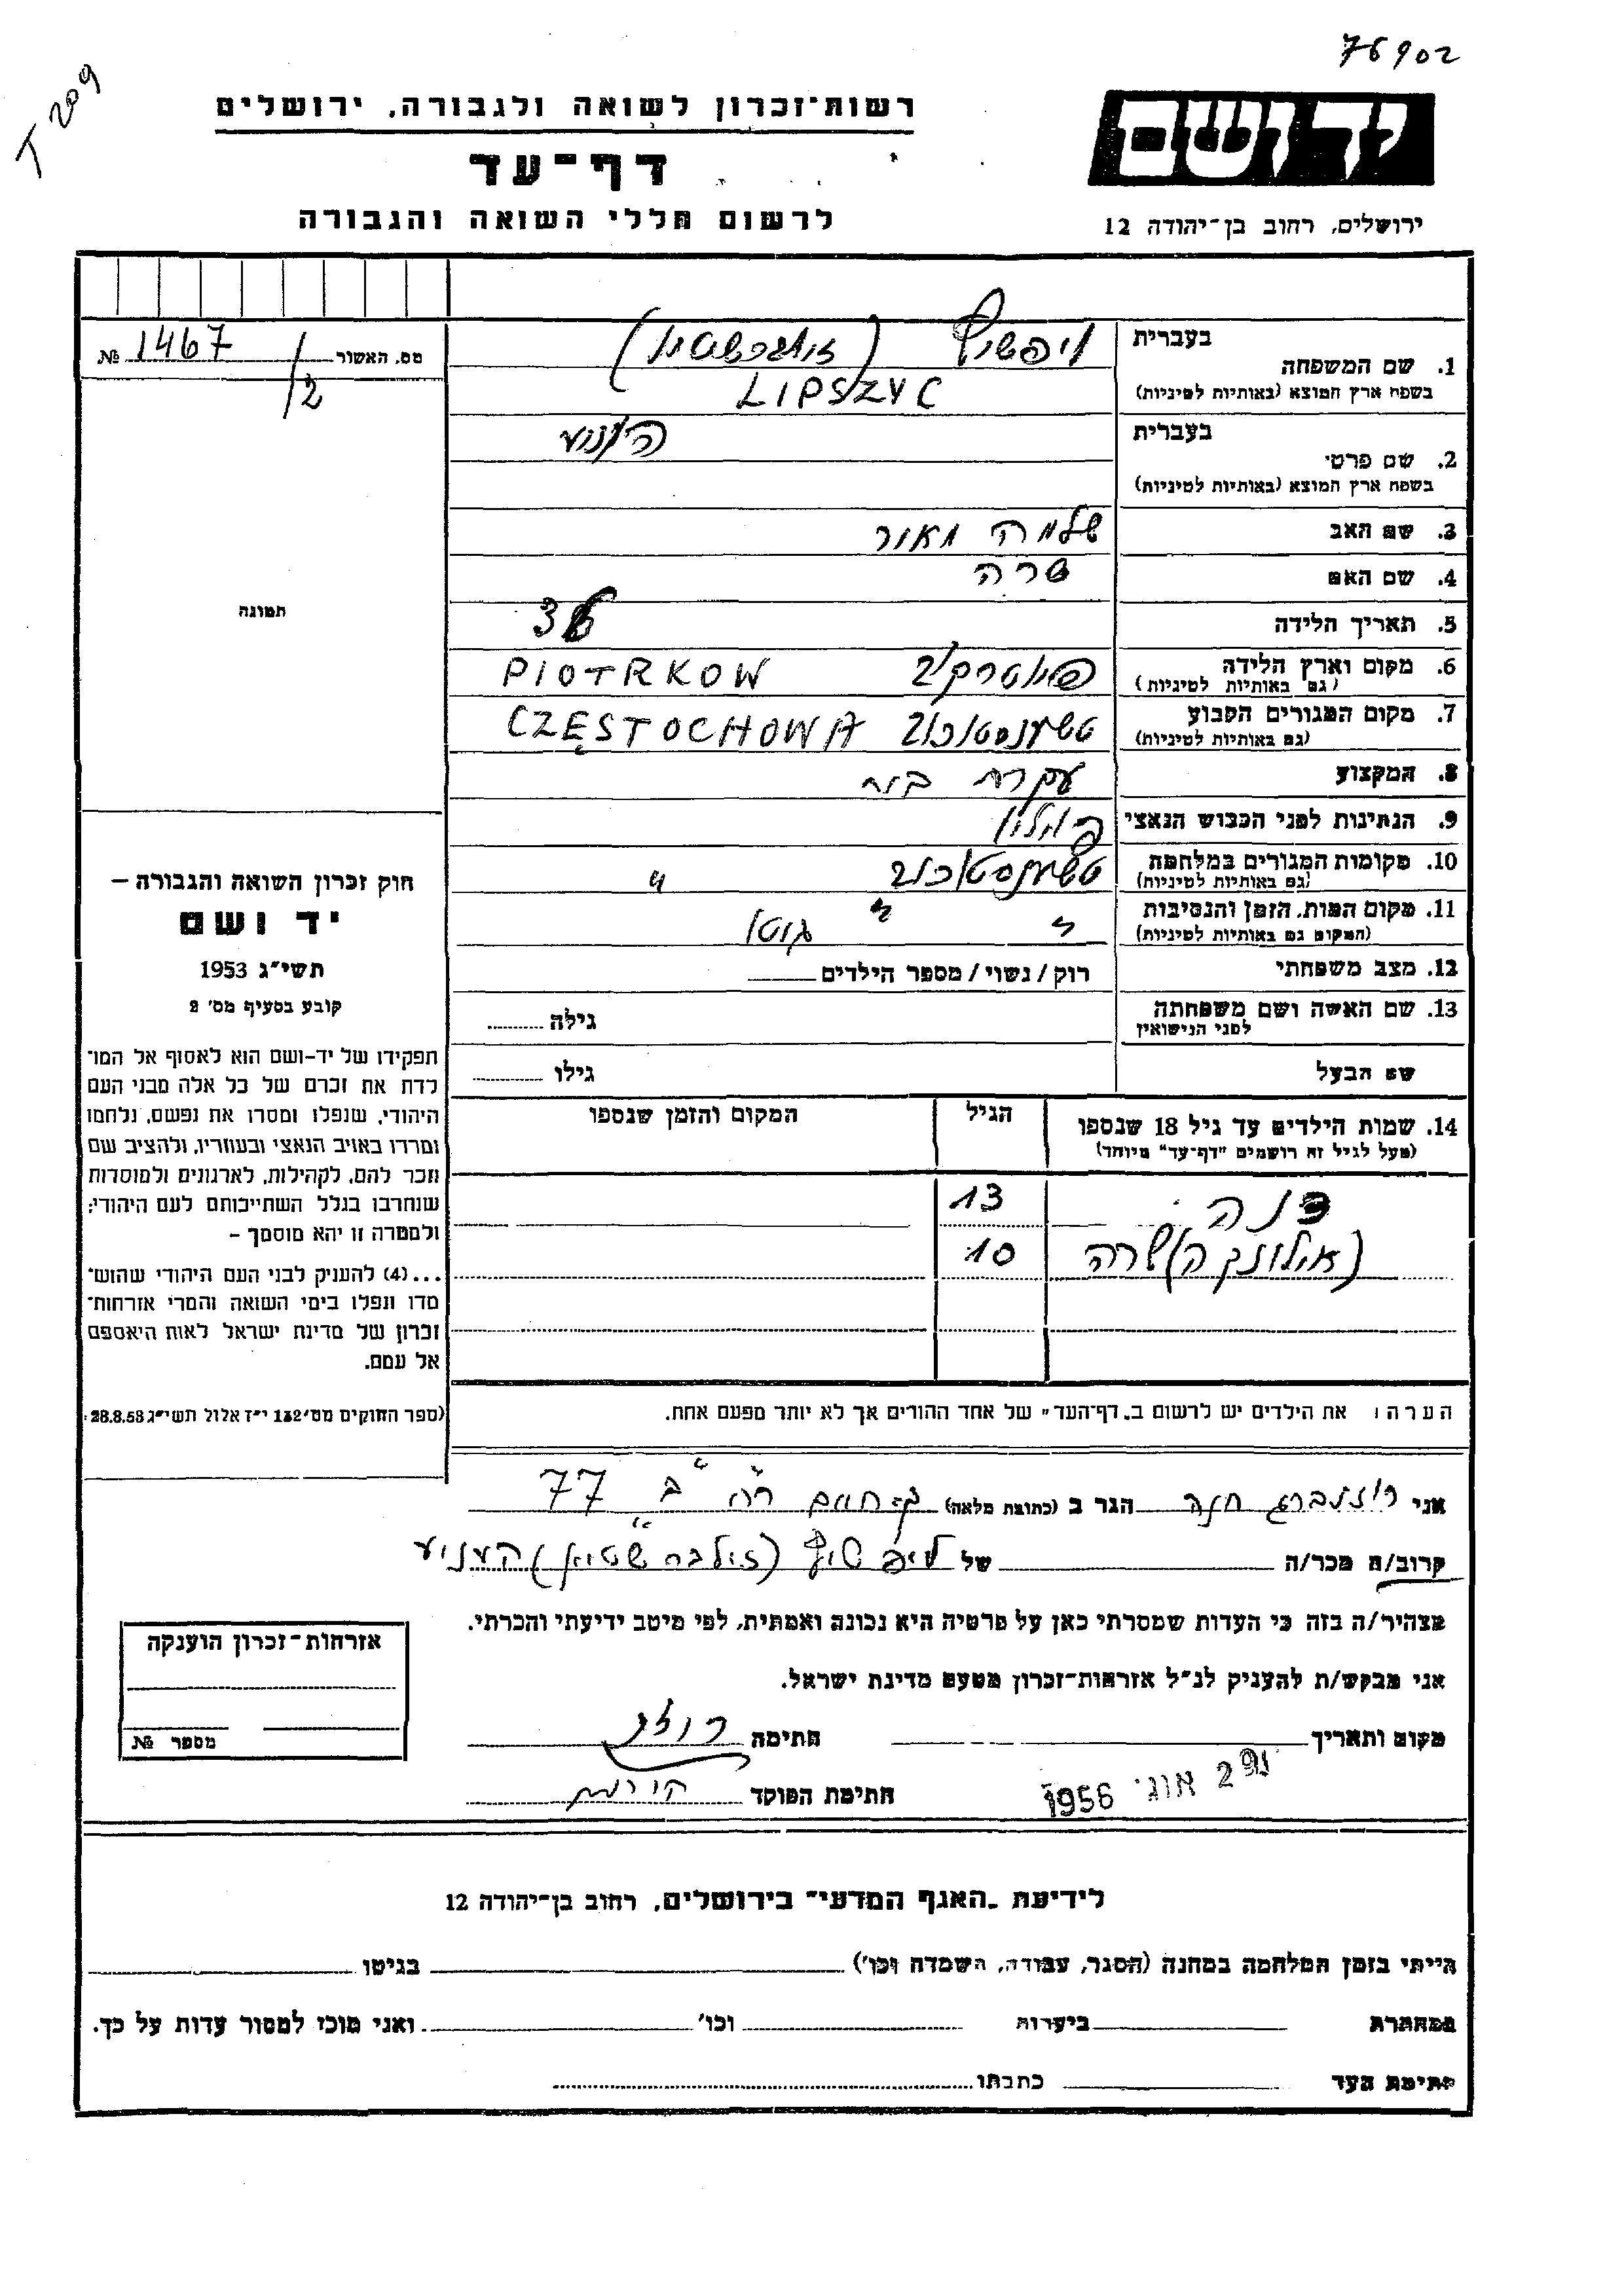 76902
T 209
יד ושם
ירושלים, רחוב בן-יהודה 12
רשות-זכרון לשואה ולגבורה, ירושלים
דף-עד
לרשום חללי השואה והגבורה
מס. האשור № 1467/2
תמונה
חוק זכרון השואה והגבורה –
יד ושם
תשי״ג 1953
קובע בסעיף מס׳ 2
תפקידו של יד-ושם הוא לאסוף אל המו-
לדת את זכרם של כל אלה מבני העם
היהודי, שנפלו ומסרו את נפשם, נלחמו
ומרדו באויב הנאצי ובעוזריו, ולהציב שם
וזכר להם, לקהילות, לארגונים ולמוסדות
שנחרבו בגלל השתייכותם לעם היהודי;
ולמטרה זו יהא מוסמך –
...(4) להעניק לבני העם היהודי שהוש-
מדו ונפלו בימי השואה והמרי אזרחות-
זכרון של מדינת ישראל לאות היאספם
אל עמם.
(ספר החוקים מס׳ 132 י״ז אלול תשי״ג 28.8.53)
בעברית ליפשיץ (זילברשטיין)
1. שם המשפחה
בשפת ארץ המוצא (באותיות לטיניות) LIPSZYC
בעברית העניע
2. שם פרטי
בשפת ארץ המוצא (באותיות לטיניות)
3. שם האב שלמה מאור
4. שם האם שרה
5. תאריך הלידה
6. מקום וארץ הלידה פיוטרקוב PIOTRKOW
(גם באותיות לטיניות)
7. מקום המגורים הקבוע טשענסטאכוב CZĘSTOCHOWA
(גם באותיות לטיניות)
8. המקצוע עקרת בית
9. הנתינות לפני הכבוש הנאצי פולין
10. מקומות המגורים במלחמה טשענסטאכוב "
(גם באותיות לטיניות)
11. מקום המות, הזמן והנסיבות " " גיטו
(המקום גם באותיות לטיניות)
12. מצב משפחתי רוק / נשוי / מספר הילדים
13. שם האשה ושם משפחתה גילה
לפני הנישואין
שם הבעל גילו
14. שמות הילדים עד גיל 18 שנספו הגיל המקום והזמן שנספו
(מעל לגיל זה רושמים "דף-עד" מיוחד)
13
(אילונקה) שרה 10
הערה: את הילדים יש לרשום ב„דף-העד" של אחד ההורים אך לא יותר מפעם אחת.
אני רוזנברג חנה הגר ב (כתובת מלאה) ק. חיים רח׳ ב 77
קרוב/ה מכר/ה של ליפשיץ (זילברשטיין) העניע
מצהיר/ה בזה כי העדות שמסרתי כאן על פרטיה היא נכונה ואמתית, לפי מיטב ידיעתי והכרתי.
אני מבקש/ת להעניק לנ״ל אזרחות-זכרון מטעם מדינת ישראל.
מקום ותאריך חתימה
29 אוג׳ 1956 חתימת הפוקד
אזרחות-זכרון הוענקה
מספר №
לידיעת „האגף המדעי" בירושלים, רחוב בן-יהודה 12
הייתי בזמן המלחמה במחנה (הסגר, עבודה, השמדה וכו׳) בגיטו
במחתרת ביערות וכו׳ ואני מוכן למסור עדות על כך.
חתימת העד כתבתו